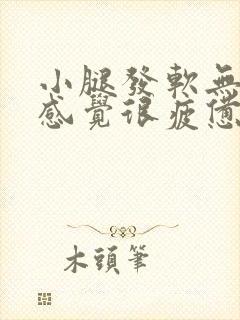 小腿發軟無
感覺很疲憊
木頭筆